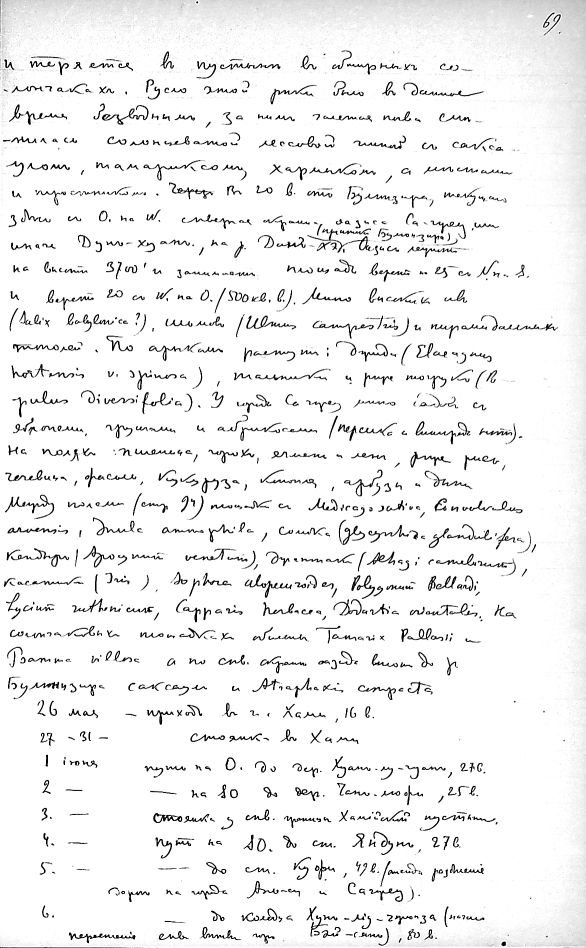 69.
и теряется въ пустынѣ въ обширныхъ со-
-лончакахъ. Русло этой рѣки было въ данное
время безводнымъ, за нимъ глинистая
солонцеватой лессовой глиной съ сакса-
уломъ, тамариксомъ, хармыкомъ, а мѣстами
и тростникомъ. Въ 20 в. отъ Булунзира, текущаго
здѣсь съ O. на W. сѣверная окраина оазиса Са-чжеу или
иначе Дунь-хуанъ, на р. Данъ-хэ (притокъ Булюнзира). Оазисъ лежитъ
на высотѣ 3700' и занимаетъ площадь верстъ въ 25 съ N. на S.
и верстъ 20 съ W. на O. (500 кв. в.). Много высокихъ ивъ
(Salix babylonica?), ильмовъ (Ulmus campestris) и пирамидальныхъ
тополей. По арыкамъ растутъ: джида (Elaeagnus
hortensis v. spinosa), тальники и рѣже тогруки (Po-
pulus diversifolia). У города Са-чжеу много садовъ съ
яблонями, грушами и абрикосами (персика и винограда нѣтъ).
На поляхъ: пшеница, горохъ, ячмень и ленъ, рѣже рисъ,
чечевица, фасоль, кукуруза, конопля, арбузы и дыни
Между полями (стр. 94) площадки съ Medicago sativa, Convolvulus
arvensis, Inula ammophila, солодка (glycyrrhiza glandulifera),
кендырь (Apocynum venetum), джантакъ (Alhagi camelorum),
касатики (Iris), Sophora alopecuroides, Polygonum Bellardi,
Lycium ruthenicum, Capparis herbacea, Dodartia orientalis. На
солончаковыхъ площадкахъ обильны Tamarix Pallasii и
Psamma villosa а по сѣв. окраинѣ оазиса вплоть до р.
Булюнзира саксаулъ и Atraphaxis compacta
26 мая — приходъ въ г. Хами, 16 в.
27 - 31 — стоянка въ Хами
1 іюня путь на O. до дер. Хуанъ-лу-гуанъ, 27 в.
2 — — на SO до дер. , 25 в.
3. — стоянка у сѣв. границы Хамійской пустыни.
4. — путь на SO. до ст. Яндунь, 27 в.
5. — — до ст. Куфи, 49 в. (отсюда развѣтвленіе
дорогъ на города Аньси и Сачжеу).
6. — до колодца (начали
пересѣченіе сѣв. вѣтви горъ Бэй-сянь), 80 в.